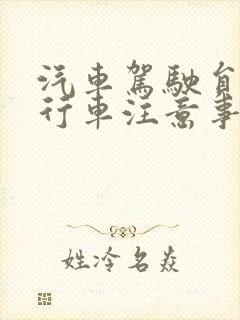 汽車駕駛員
行車注意事
姓冷名焱